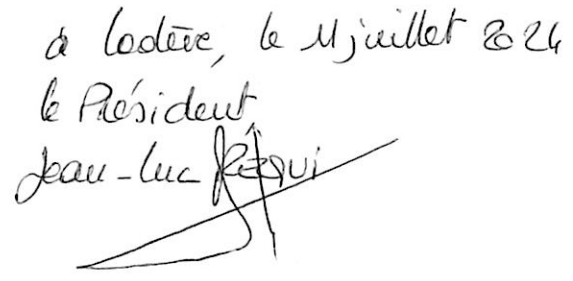 à Lodève, le 11 juillet 2024
le Président,
Jean-Luc RÉQUI